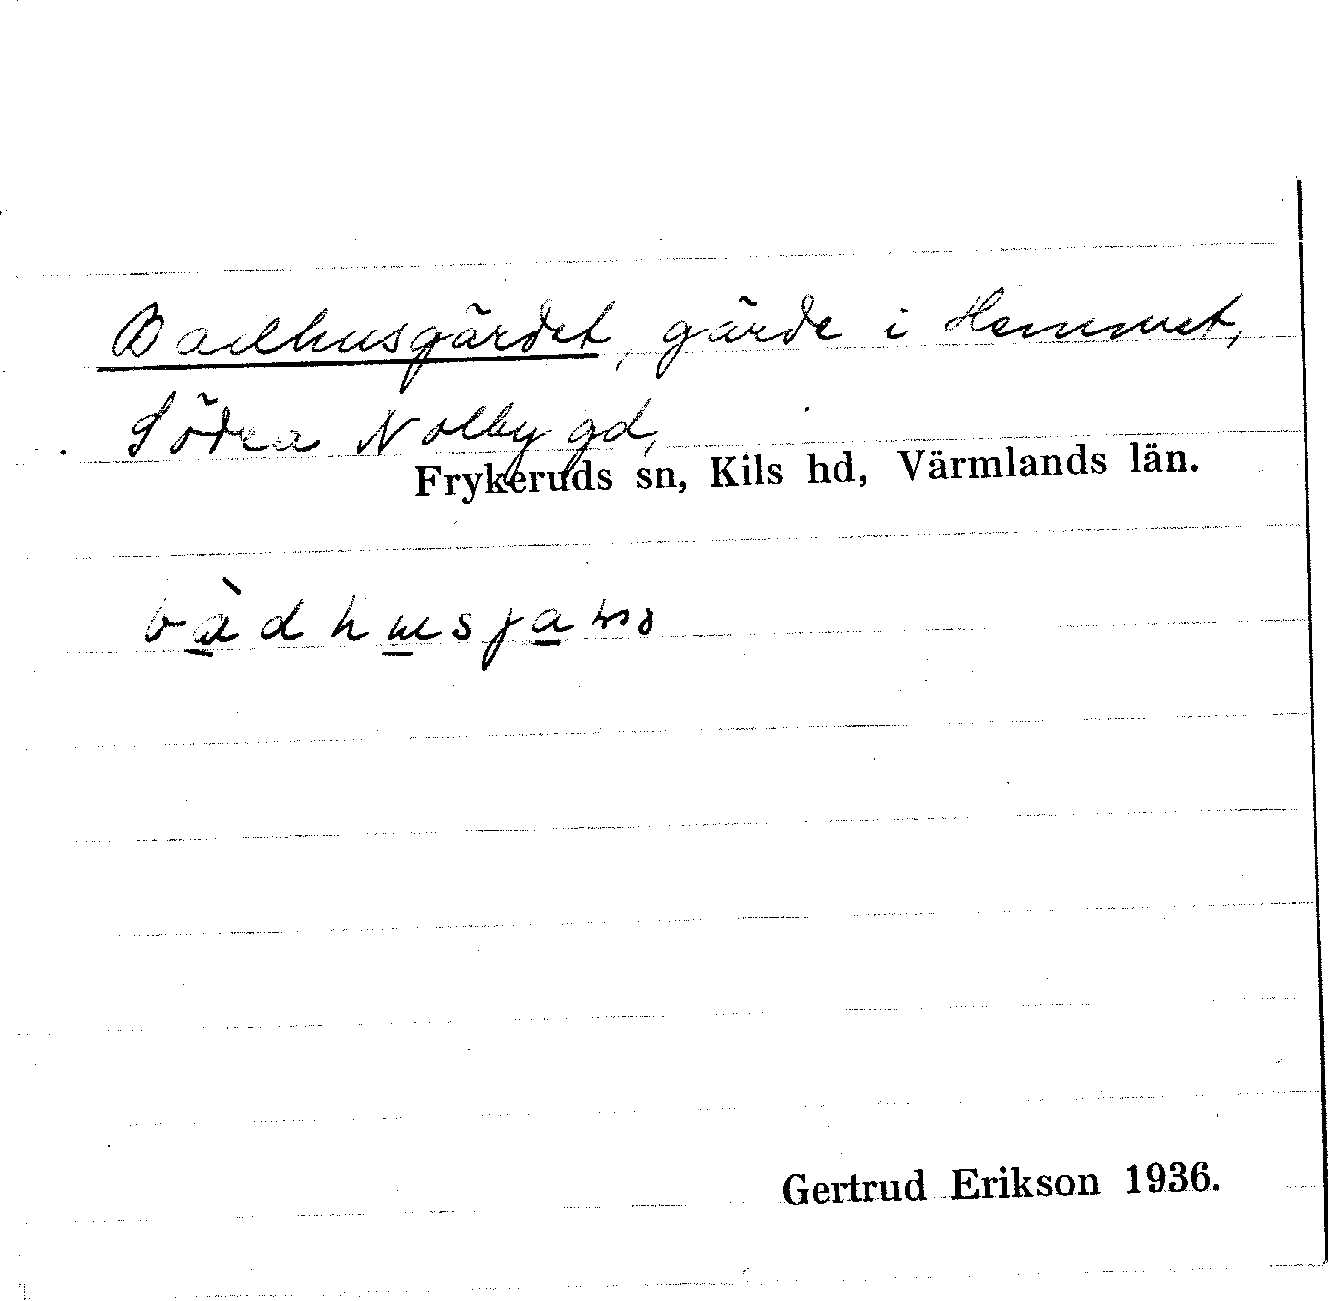 Badhusgärdet, gärde i Hemmet,
Södra Nolby gd,
Frykeruds sn, Kils hd, Värmlands län.
Gertrud Erikson 1936.